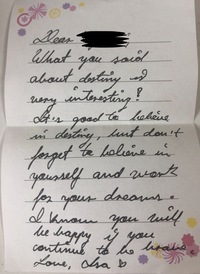 Dear
What you said
about destiny is
very interesting!
It's good to believe
in destiny, but don't
forget to believe in
yourself and work
for your dreams.
I know you will
be happy if you
continue to be brave.
Love,